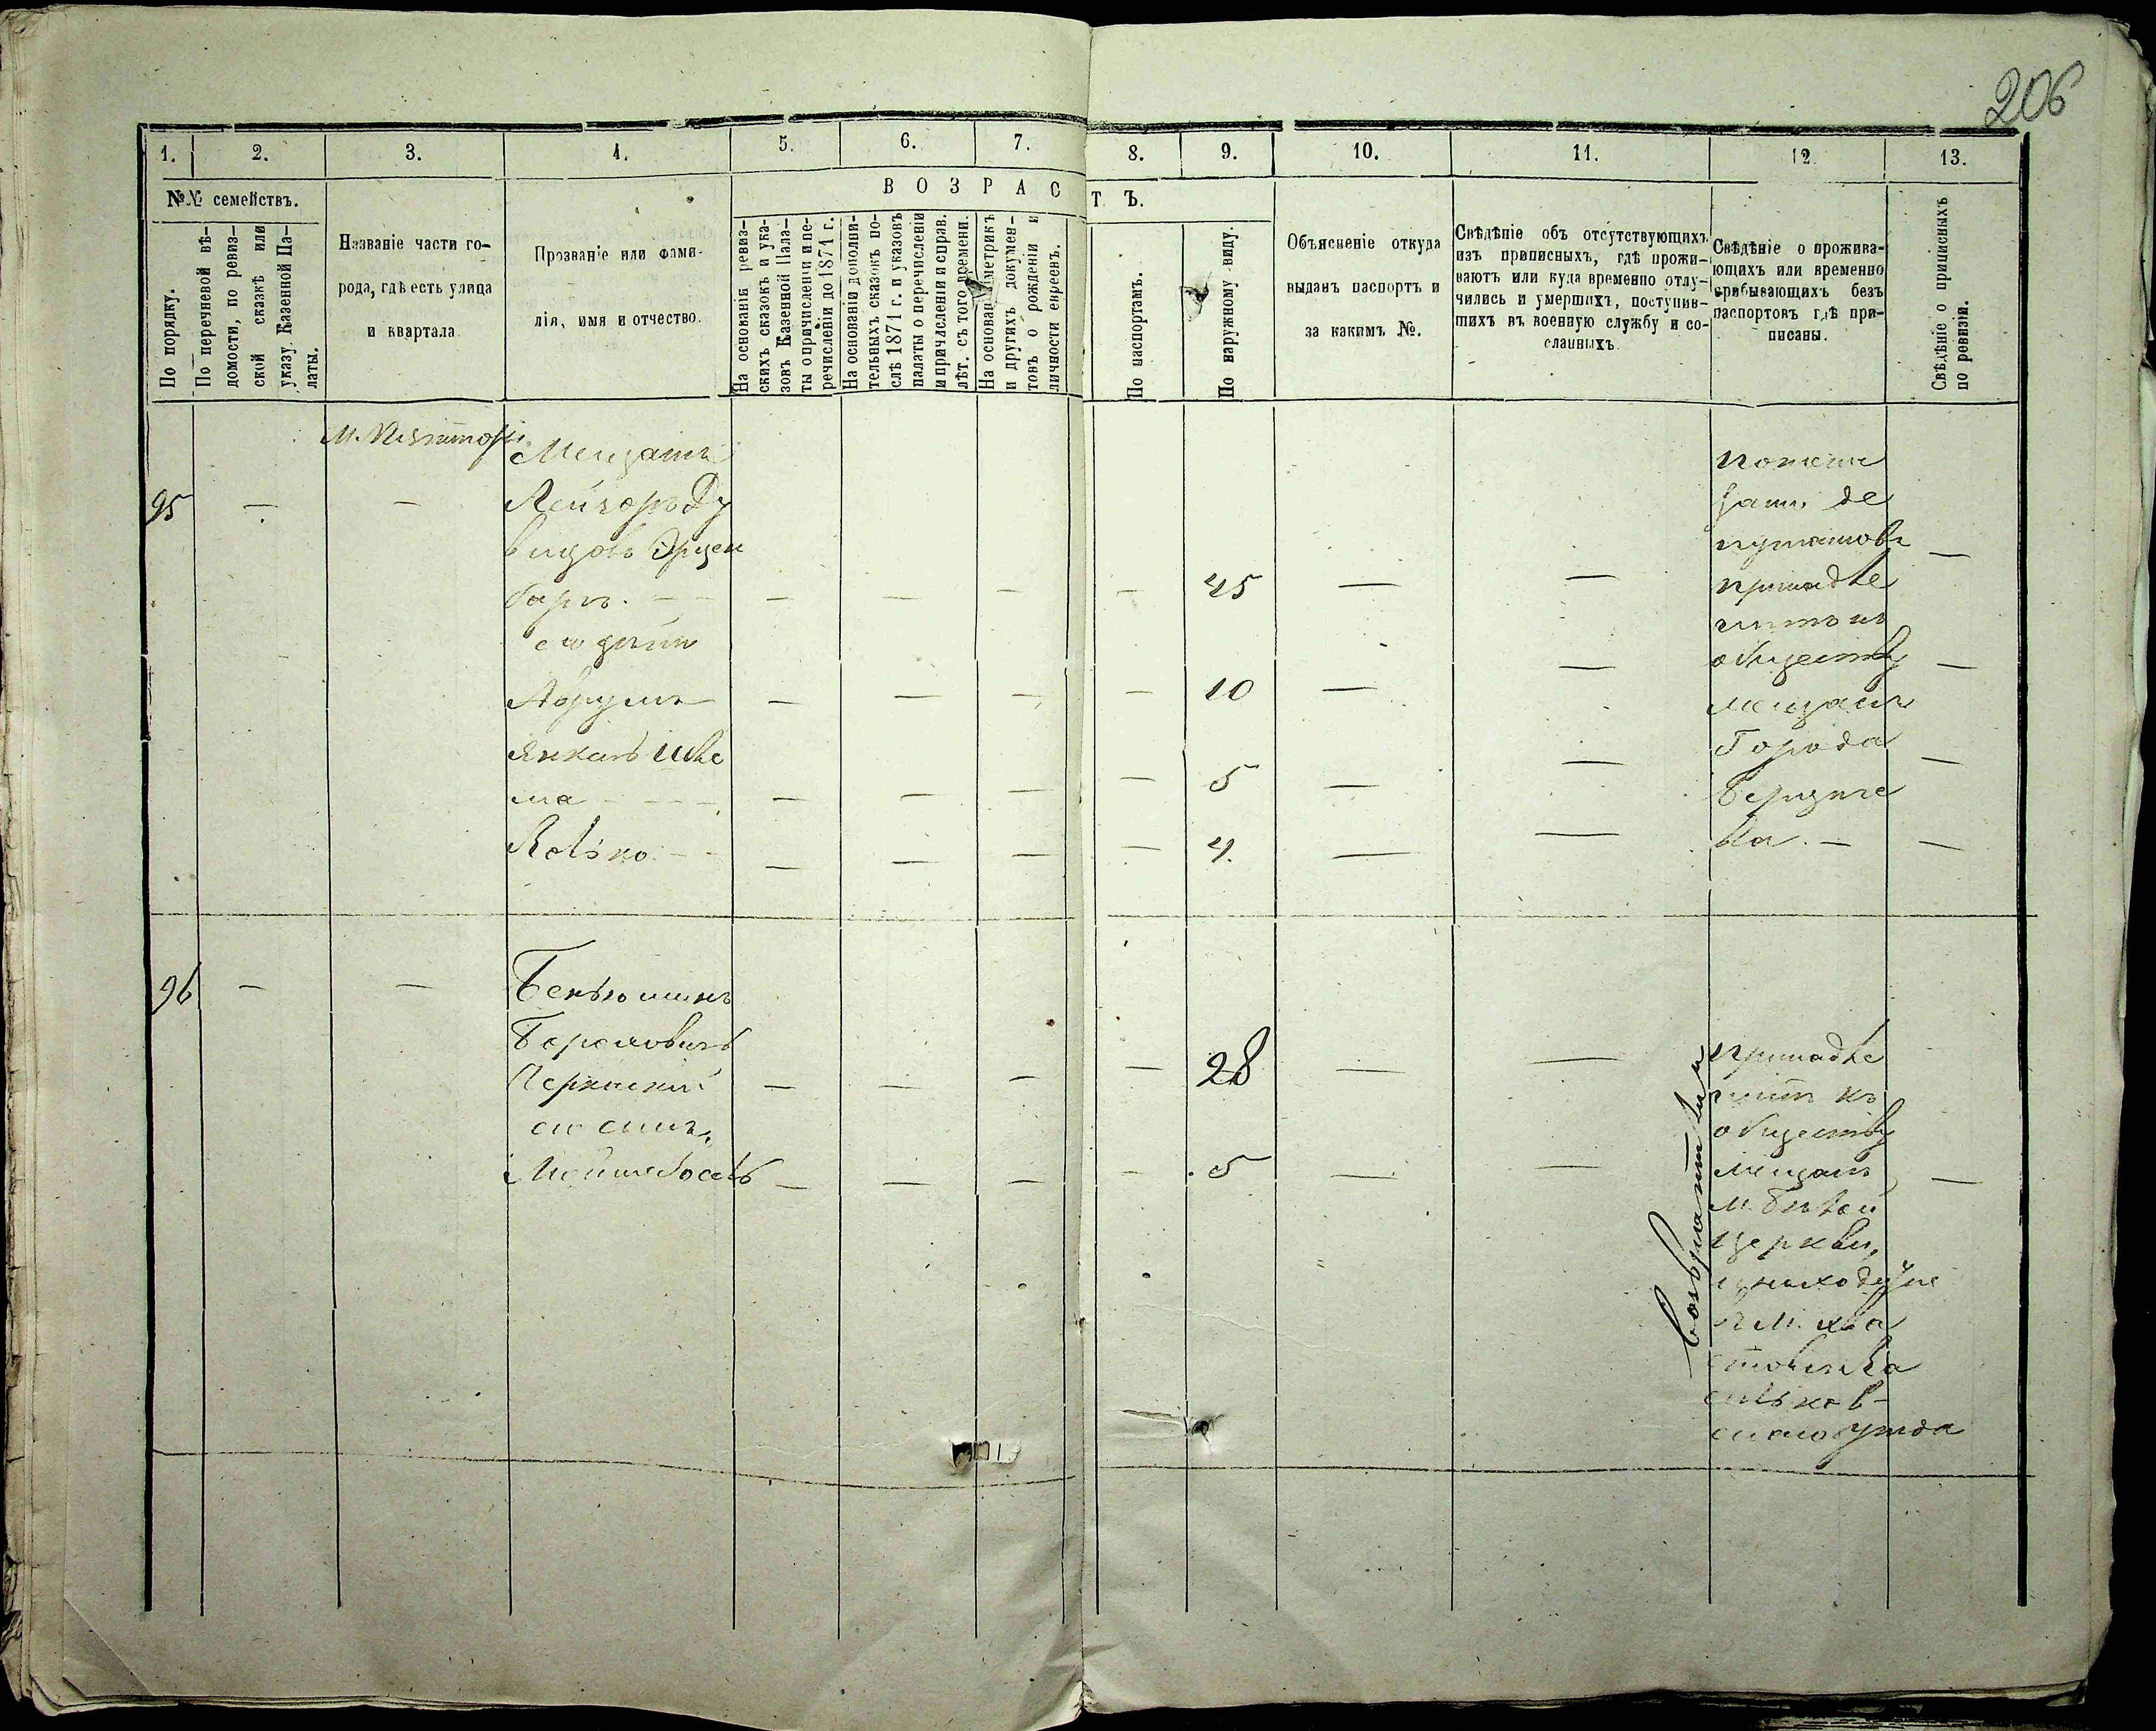 206
1. 2. 3. 4. 5. 6. 7. 8. 9. 10. 11. 12 13.
№№ семействъ.
По порядку.
По перечневой вѣ-
домости, по ревиз-
ской сказкѣ или
указу Казенной Па-
латы.
Названіе части го-
рода, гдѣ есть улица
и квартала
Прозваніе или фами-
лія, имя и отчество.
ВОЗРАСТЪ.
На основаніи ревиз-
скихъ сказокъ и ука-
зовъ Казенной Пала-
ты о причисленіи и пе-
речисленіи до 1871 г.
На основаніи дополни-
тельныхъ сказокъ по-
слѣ 1871 г. и указовъ
палаты о перечисленіи
и причисленіи и справ.
лѣт. съ того времени.
На основаніи метрикъ
и другихъ докумен-
товъ о рожденіи и
личности евреевъ.
По паспортамъ.
По наружному виду.
Объясненіе откуда
выданъ паспортъ и
за какимъ №.
Свѣдѣніе объ отсутствующихъ
изъ приписныхъ, гдѣ прожи-
ваютъ или куда временно отлу-
чились и умершихъ, поступив-
шихъ въ военную службу и со-
сланныхъ.
Свѣдѣніе о прожива-
ющихъ или временно
прибывающихъ безъ
паспортовъ гдѣ при-
писаны.
Свѣдѣніе о приписныхъ
по ревизіи.
Мещанъ
95 — —
— — — — 45 — — —
его дѣти
Аврумъ — — — — 10 — — —
Янкель Шлё
ма — — — — 5 — — —
— — — — 4. — — —
принадле
житъ къ
обществу
мещанъ
Города
Бердиче
ва. —
96 — — Беньюминъ
Берковичъ
Черкаскій — — — — 28 — —
его сынъ,
— — — — 5 — — —
принадле
житъ къ
обществу
мещанъ
м. Бѣлой
Церкви,
в м. Хва
стов
сильков-
скаго уѣзда